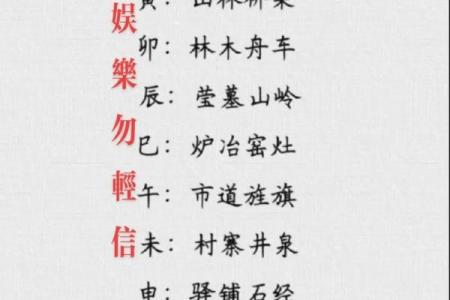 寅：山林桥梁
卯：林木舟车
辰：莹墓山岭
巳：炉冶窑灶
午：市道旌旗
未：村寨井泉
申：驿铺石经
娱樂勿輕信